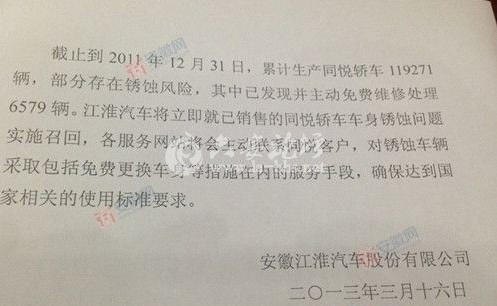 截止到 2011 年 12 月 31 日，累计生产同悦轿车 119271
辆，部分存在锈蚀风险，其中已发现并主动免费维修处理
6579 辆。江淮汽车将立即就已销售的同悦轿车车身锈蚀问题
实施召回，各服务网站将会主动联系同悦客户，对锈蚀车辆
采取包括免费更换车身等措施在内的服务手段，确保达到国
家相关的使用标准要求。
安徽江淮汽车股份有限公司
二〇一三年三月十六日